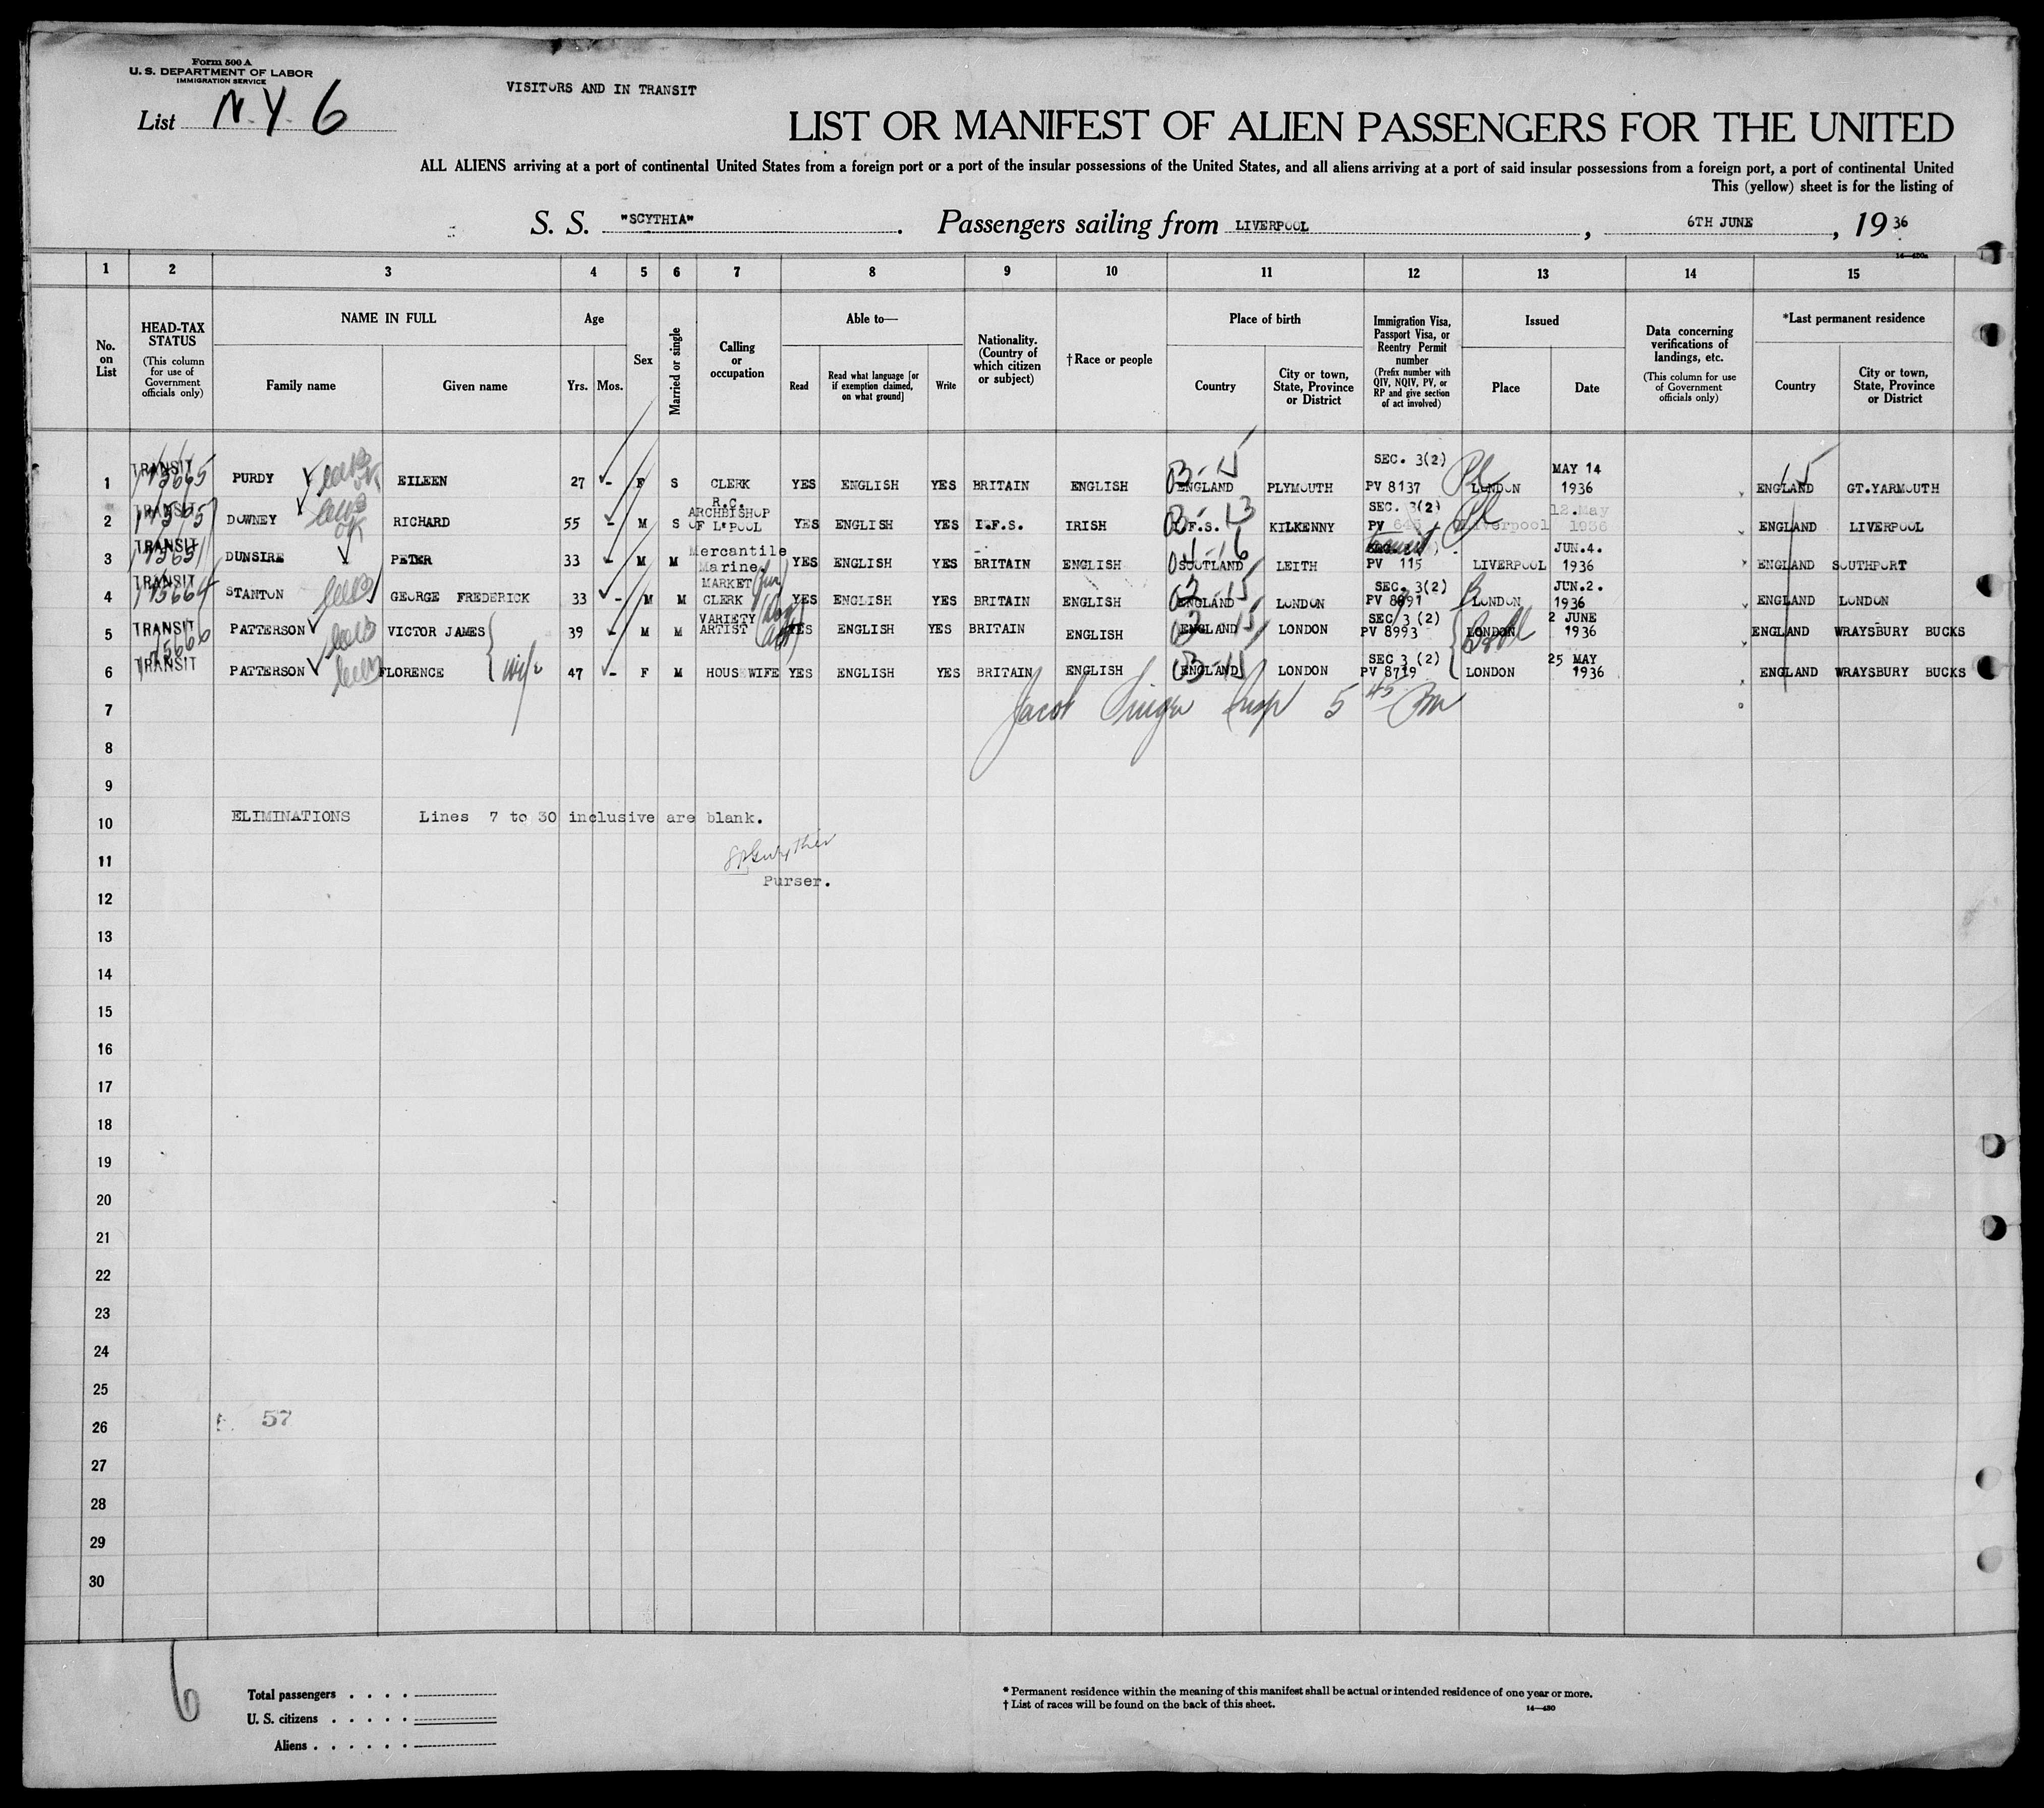 Form 500 A
U. S. DEPARTMENT OF LABOR
IMMIGRATION SERVICE
List N.Y. 6
VISITORS AND IN TRANSIT
LIST OR MANIFEST OF ALIEN PASSENGERS FOR THE UNITED
ALL ALIENS arriving at a port of continental United States from a foreign port or a port of the insular possessions of the United States, and all aliens arriving at a port of said insular possessions from a foreign port, a port of continental United
This (yellow) sheet is for the listing of
S. S. "SCYTHIA". Passengers sailing from LIVERPOOL, 6TH JUNE, 19 36
1 2 3 4 5 6 7 8 9 10 11 12 13 14 15
No. on List
HEAD-TAX STATUS (This column for use of Government officials only)
NAME IN FULL Family name Given name
Age Yrs. Mos.
Sex
Married or single
Calling or occupation
Able to— Read Read what language [or if exemption claimed, on what ground] Write
Nationality. (Country of which citizen or subject)
†Race or people
Place of birth Country City or town, State, Province or District
Immigration Visa, Passport Visa, or Reentry Permit number (Prefix number with QIV, NQIV, PV, or RP and give section of act involved)
Issued Place Date
Data concerning verifications of landings, etc. (This column for use of Government officials only)
*Last permanent residence Country City or town, State, Province or District
1 TRANSIT PURDY EILEEN 27 - F S CLERK YES ENGLISH YES BRITAIN ENGLISH 03-15 ENGLAND PLYMOUTH SEC. 3(2) PV 8137 Pl LONDON MAY 14 1936 15 ENGLAND GT.YARMOUTH
2 TRANSIT DOWNEY OK RICHARD 55 - M S R.C. ARCHBISHOP OF L'POOL YES ENGLISH YES I.F.S. IRISH I.F.S. KILKENNY SEC. 3(2) PV Pl Liverpool 12 May 1936 ENGLAND LIVERPOOL
3 TRANSIT DUNSIRE PETER 33 - M M Mercantile Marine. YES ENGLISH YES BRITAIN ENGLISH SCOTLAND LEITH PV 115 LIVERPOOL JUN.4. 1936 ENGLAND SOUTHPORT
4 TRANSIT STANTON GEORGE FREDERICK 33 - M M MARKET CLERK YES ENGLISH YES BRITAIN ENGLISH ENGLAND LONDON SEC. 3(2) PV 8891 LONDON JUN.2. 1936 ENGLAND LONDON
5 TRANSIT PATTERSON VICTOR JAMES 39 - M M VARIETY ARTIST YES ENGLISH YES BRITAIN ENGLISH ENGLAND LONDON SEC 3 (2) PV 8993 LONDON 2 JUNE 1936 ENGLAND WRAYSBURY BUCKS
6 TRANSIT PATTERSON FLORENCE wife 47 - F M HOUSEWIFE YES ENGLISH YES BRITAIN ENGLISH 03-15 ENGLAND LONDON SEC 3 (2) PV 8719 LONDON 25 MAY 1936 ENGLAND WRAYSBURY BUCKS
7 Jacob Singer Insp 5 45 Pm
8
9
10 ELIMINATIONS Lines 7 to 30 inclusive are blank.
11
Purser.
12
13
14
15
16
17
18
19
20
21
22
23
24
25
26 57
27
28
29
30
6
Total passengers . . . .
U. S. citizens . . . . .
Aliens . . . . . .
* Permanent residence within the meaning of this manifest shall be actual or intended residence of one year or more.
† List of races will be found on the back of this sheet.
14—480